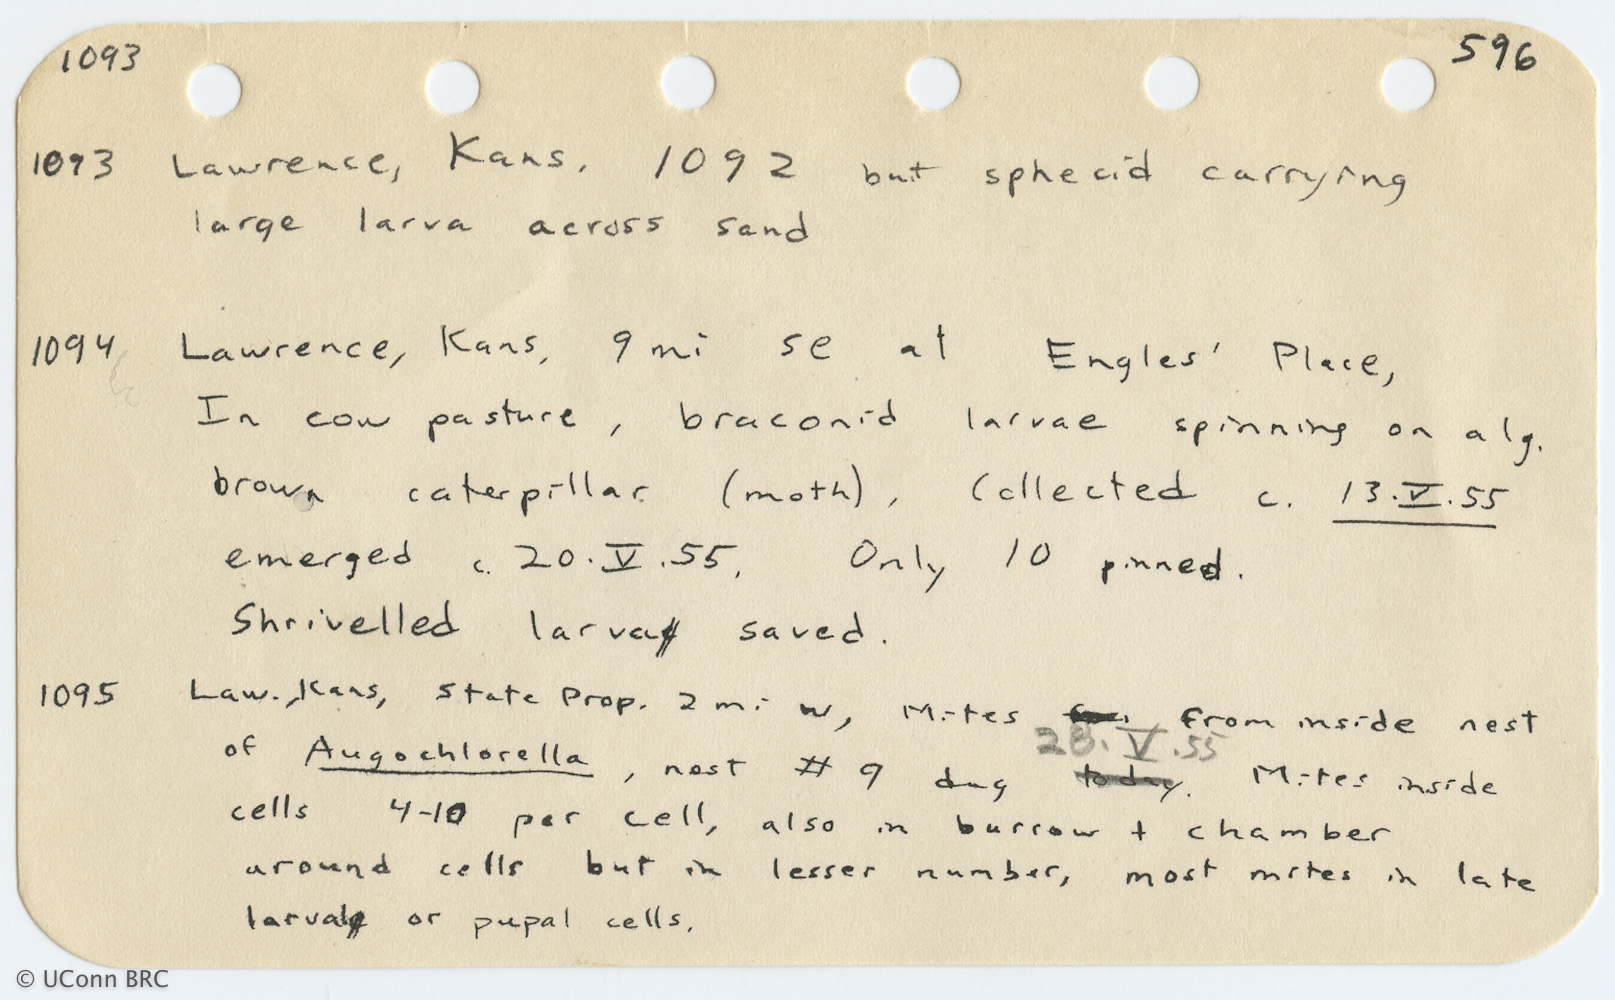 1093 596
1093 Lawrence, Kans. 1092 but sphecid carrying
large larva across sand
1094 Lawrence, Kans, 9 mi se at Engles' Place,
In cow pasture, braconid larvae spinning on a lg.
brown caterpillar (moth), Collected c. 13.V.55
emerged c. 20.V.55. Only 10 pinned.
Shrivelled larva saved.
1095 Law., Kans, State Prop. 2 mi w, Mites from inside nest
28.V.55
of Augochlorella, nest # 9 dug today. Mites inside
cells 4-10 per cell, also in burrow + chamber
around cells but in lesser number, most mites in late
larval or pupal cells.
© UConn BRC